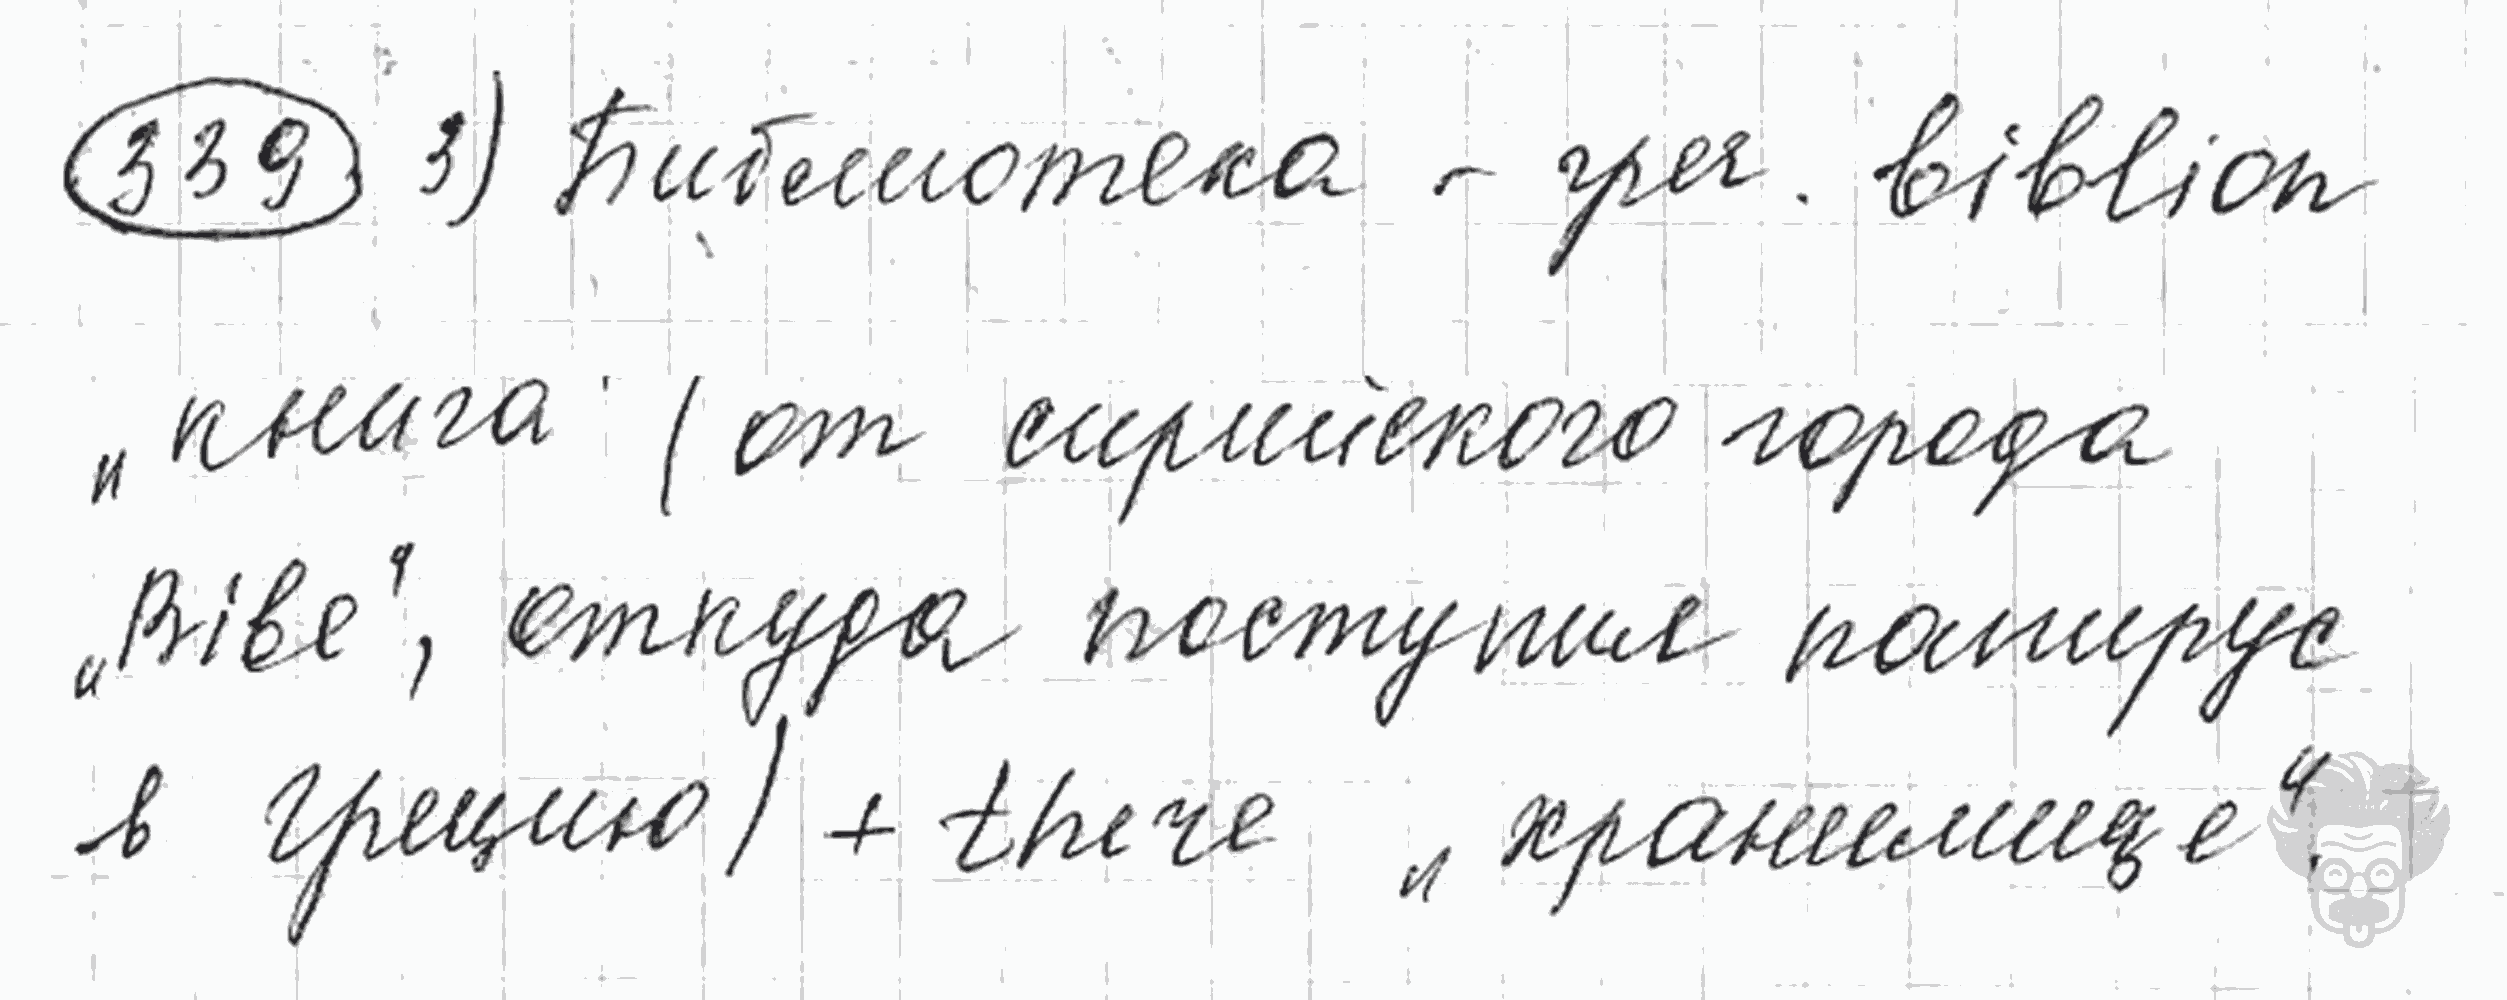 339 3) Библиотека - греч. biblion
„книга" (от сирийского города
„Bibe", откуда поступил папирус
в грецию) + thече „хранилище".